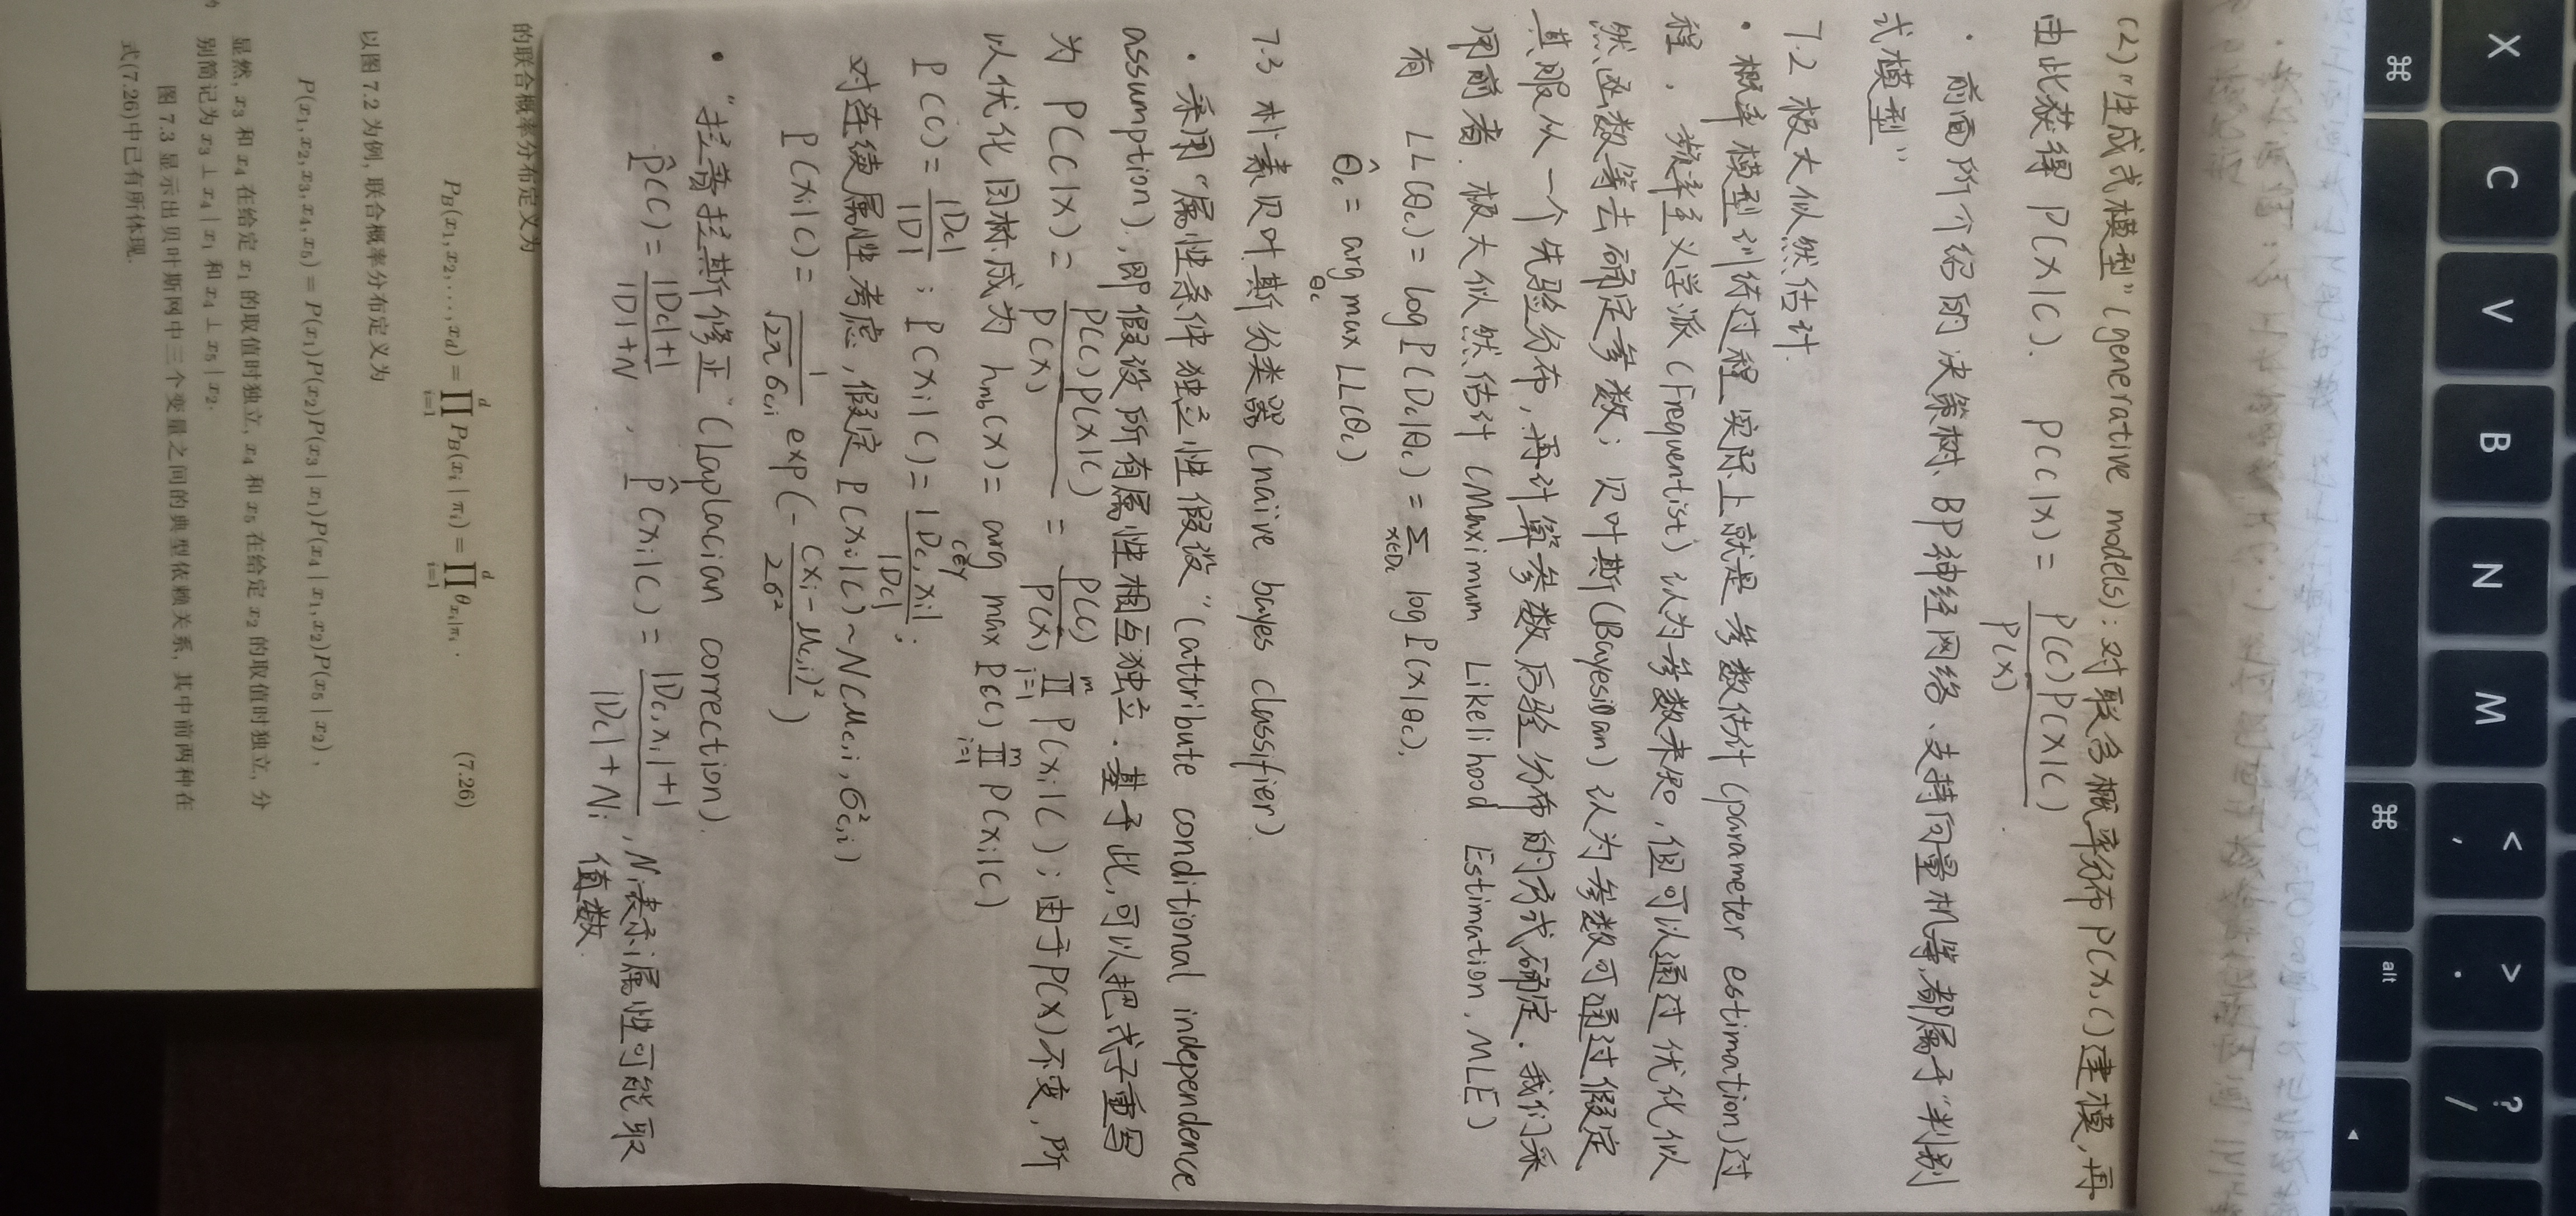 (2)"生成式模型"(generative models):对联合概率分布P(x,c)建模,再
由此获得 P(x|c). P(c|x) = P(c)P(x|c) / P(x)
· 前面所介绍的决策树、BP神经网络、支持向量机等,都属于"判别
式模型"
7.2 极大似然估计.
· 概率模型训练过程实际上就是参数估计(parameter estimation)过
程. 频率主义学派(Frequentist)认为参数未知,但可以通过优化似
然函数等去确定参数;贝叶斯(Bayesian)认为参数可通过假定
其服从一个先验分布,再计算参数后验分布的方式确定. 我们采
用前者. 极大似然估计(Maximum Likelihood Estimation, MLE)
有 LL(θc) = log P(Dc|θc) = Σ_{x∈Dc} log P(x|θc),
θ̂c = arg max_{θc} LL(θc)
7.3 朴素贝叶斯分类器(naive bayes classifier)
· 采用"属性条件独立性假设"(attribute conditional independence
assumption),即假设所有属性相互独立. 基于此,可以把式子重写
为 P(c|x) = P(c)P(x|c) / P(x) = P(c) / P(x) ∏_{i=1}^{m} P(xi|c);由于P(x)不变,所
以优化目标成为 h_nb(x) = arg max_{c∈y} P(c) ∏_{i=1}^{m} P(xi|c)
P(c) = |Dc| / |D| ; P(xi|c) = |Dc,xi| / |Dc| ;
对连续属性考虑,假定 P(xi|c) ~ N(μc,i, σ²c,i)
P(xi|c) = 1 / √2π σc,i exp(-(xi-μc,i)² / 2σ²)
· "拉普拉斯修正"(Laplacian correction).
P̂(c) = |Dc|+1 / |D|+N , P̂(xi|c) = |Dc,xi|+1 / |Dc|+Ni , Ni表示i属性可能取
值数
的联合概率分布定义为
P_B(x1, x2, ..., xd) = ∏_{i=1}^{d} P_B(xi | πi) = ∏_{i=1}^{d} θ_{xi|πi} . (7.26)
以图 7.2 为例, 联合概率分布定义为
P(x1, x2, x3, x4, x5) = P(x1)P(x2)P(x3 | x1)P(x4 | x1, x2)P(x5 | x2) ,
显然, x3 和 x4 在给定 x1 的取值时独立, x4 和 x5 在给定 x2 的取值时独立, 分
别简记为 x3 ⊥ x4 | x1 和 x4 ⊥ x5 | x2.
图 7.3 显示出贝叶斯网中三个变量之间的典型依赖关系, 其中前两种在
式(7.26)中已有所体现.
X
C
V
B
N
M
< ,
> .
? /
⌘
⌘
alt
◂